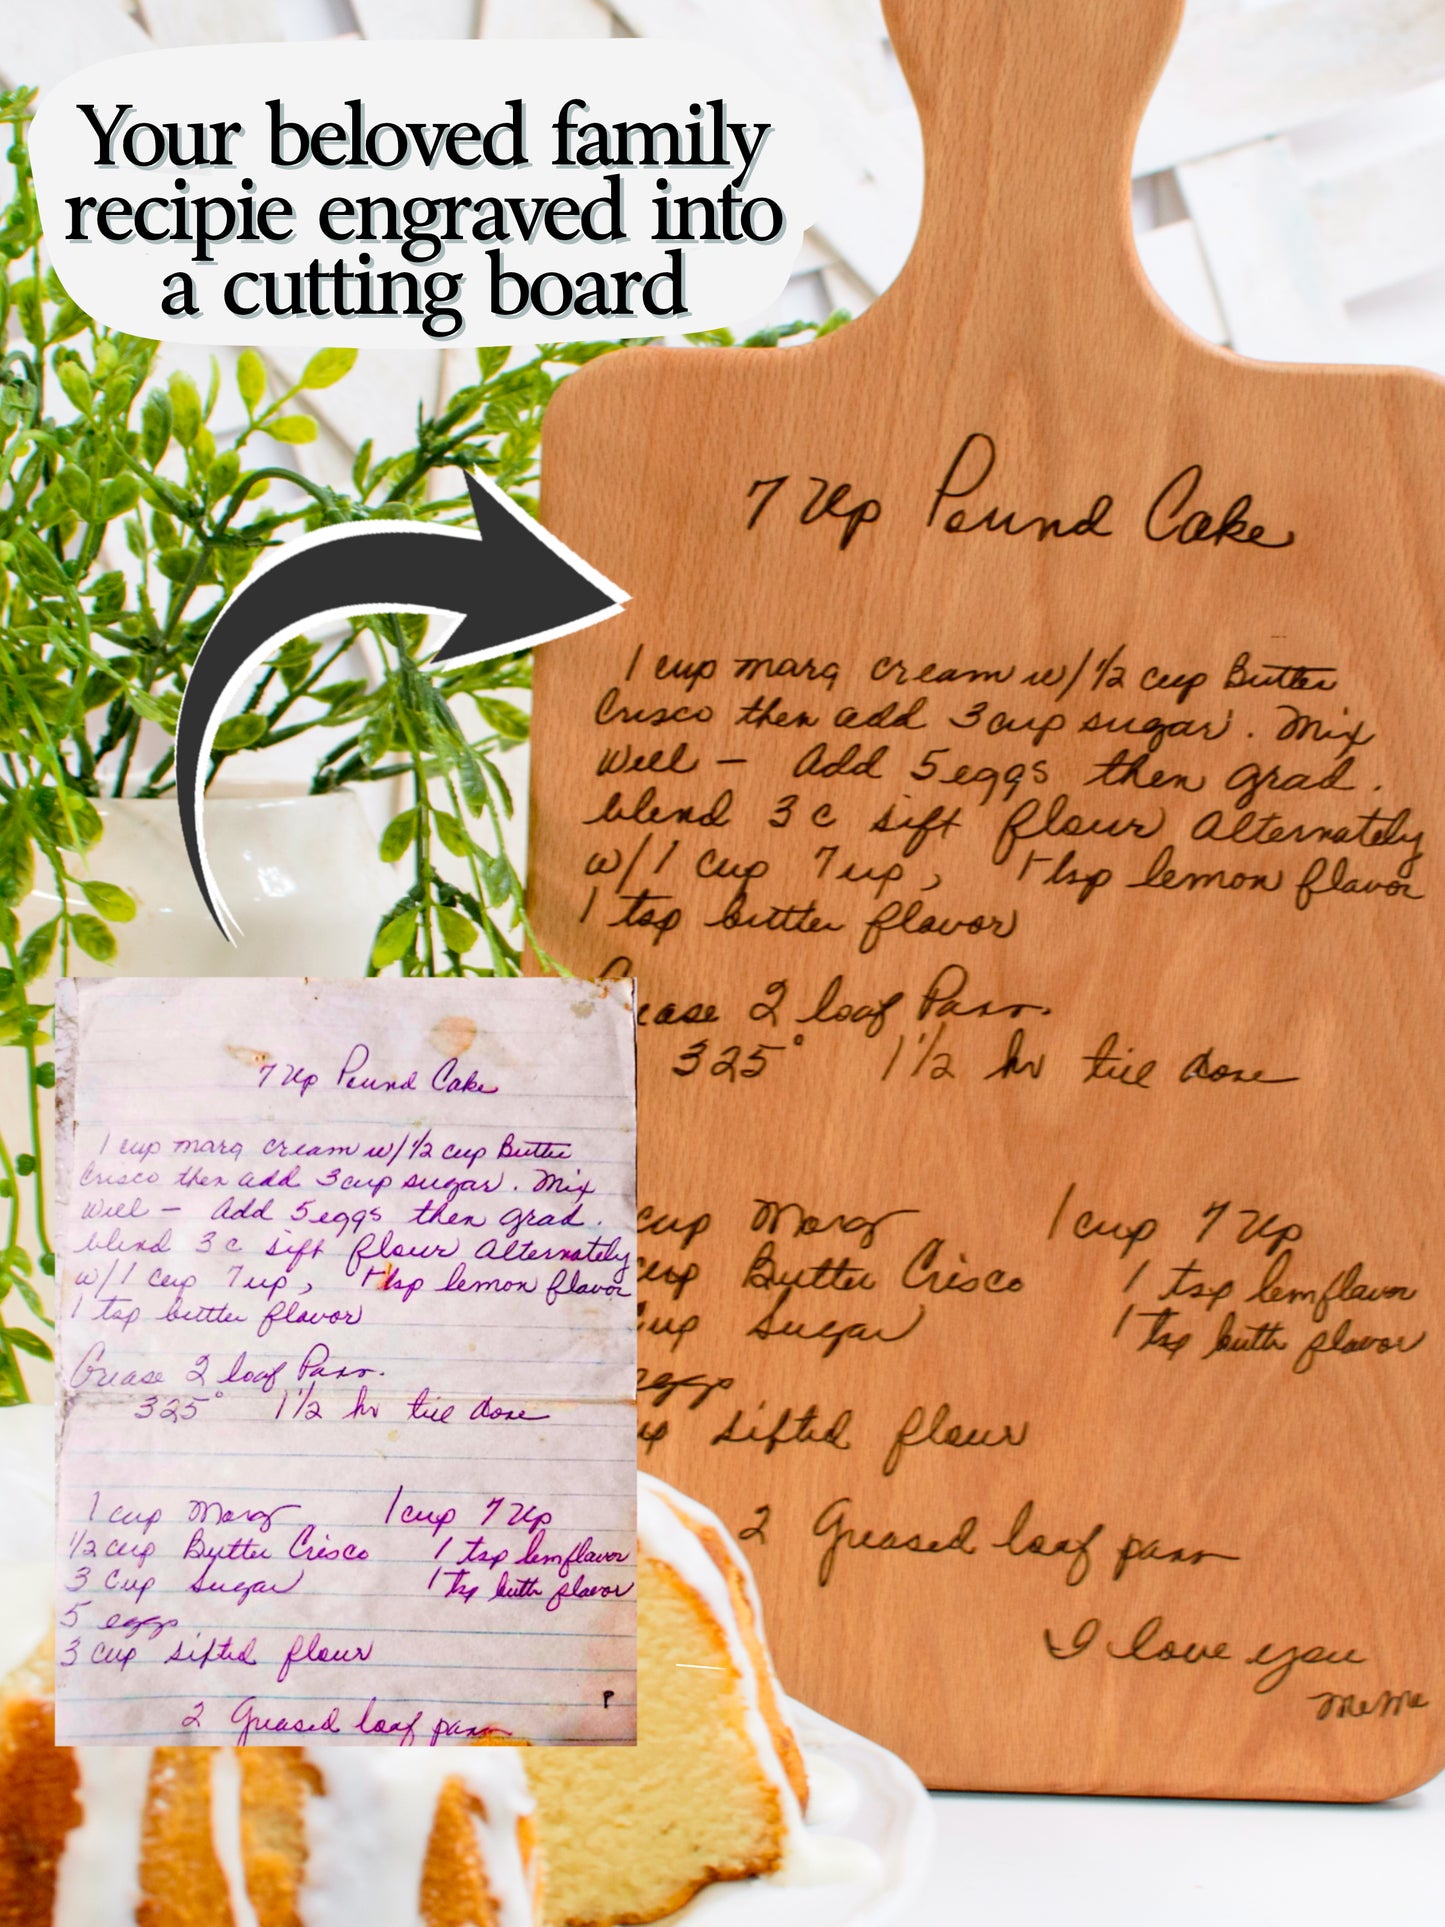 Your beloved family
recipie engraved into
a cutting board
7 Up Pound Cake
1 cup marg cream w/ 1/2 cup Butter
Crisco then add 3 cup sugar. Mix
well - add 5 eggs then grad.
blend 3 c sift flour alternately
w/ 1 cup 7 up, 1 tsp lemon flavor
1 tsp butter flavor
ease 2 loaf Pans.
325° 1 1/2 hr till done
cup Marg 1 cup 7 Up
cup Butter Crisco 1 tsp lem flavor
cup Sugar 1 tsp buttr flavor
eggs
sifted flour
2 Greased loaf pans
I love you
MeMa
7 Up Pound Cake
1 cup marg cream w/ 1/2 cup Butter
Crisco then add 3 cup sugar. Mix
well - add 5 eggs then grad.
blend 3 c sift flour alternately
w/ 1 cup 7 up, 1 tsp lemon flavor
1 tsp butter flavor
Grease 2 loaf Pans.
325° 1 1/2 hr till done
1 cup Marg 1 cup 7 Up
1/2 cup Butter Crisco 1 tsp lem flavor
3 cup Sugar 1 tsp buttr flavor
5 eggs
3 cup sifted flour
P
2 Greased loaf pans